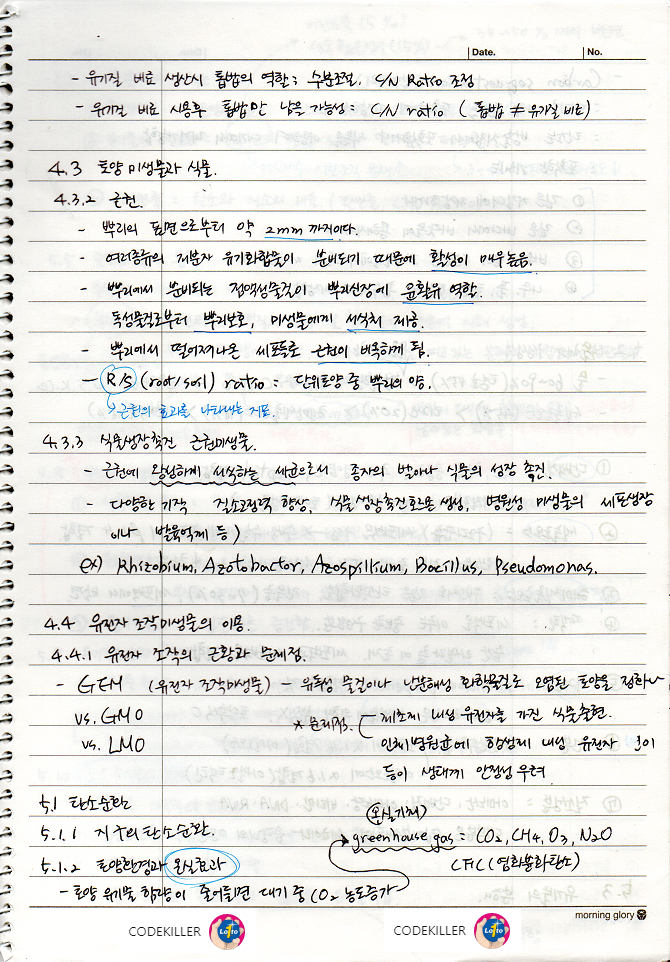 Date.
No.
- 유기질 비료 생산시 톱밥의 역할; 수분조절, C/N Ratio 조정
- 유기질 비료 시용후 톱밥만 남을 가능성: C/N ratio ( 톱밥 ≠ 유기질 비료)
4.3 토양 미생물과 식물.
4.3.2 근권.
- 뿌리의 표면으로부터 약 2mm 까지이다.
- 여러종류의 저분자 유기화합물이 분비되기 때문에 활성이 매우높음.
- 뿌리에서 분비되는 점액성물질이 뿌리신장에 윤활유 역할.
독성물질로부터 뿌리보호, 미생물에게 서식처 제공.
- 뿌리에서 떨어져나온 세포들로 근권이 비옥하게 됨.
- R/S (root/soil) ratio : 단위토양 중 뿌리의 양.
> 근권의 효과를 나타내는 지표.
4.3.3 식물생장촉진 근권미생물.
- 근권에 왕성하게 서식하는 세균으로서 종자의 발아나 식물의 성장 촉진.
- 다양한 기작 질소고정력 향상, 식물생장촉진호르몬 생성, 병원성 미생물의 세포생장
이나 발육억제 등)
ex) Rhizobium, Azotobactor, Azospillium, Bacillus, Pseudomonas.
4.4 유전자 조작미생물의 이용.
4.4.1 유전자 조작의 근황과 문제점.
- GEM (유전자 조작미생물) - 유독성 물질이나 난분해성 화학물질로 오염된 토양을 정화
vs. GMO
* 문제점. 제초제 내성 유전자를 가진 식물출현.
vs. LMO
인체병원균에 항생제 내성 유전자 전이
등이 생태계 안정성 우려.
5.1 탄소순환
(온실기체)
5.1.1 지구의 탄소순환.
greenhouse gas = CO2, CH4, O3, N2O
5.1.2 토양환경과 온실효과
CFC (염화불화탄소)
- 토양 유기물 함량이 줄어들면 대기 중 CO2 농도증가
morning glory
CODEKILLER Lotto
CODEKILLER Lotto